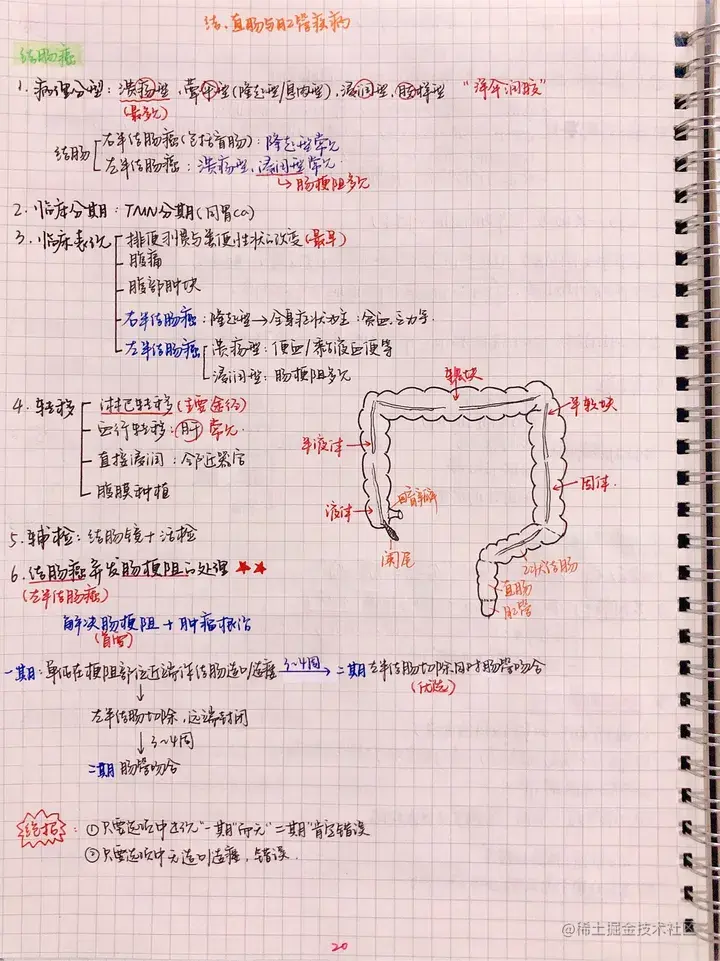 结、直肠与肛管疾病
结肠癌
1. 病理分型: 溃疡型, 隆起型(隆起型/息肉型), 浸润型, 胶样型
(最多见)
结肠
右半结肠癌(包括盲肠): 隆起型常见
左半结肠癌: 溃疡型, 浸润型常见
→ 肠梗阻多见
2. 临床分期: TMN分期(同胃ca)
3. 临床表现
排便习惯与粪便性状的改变(最早)
腹痛
腹部肿块
右半结肠癌: 隆起型→全身症状为主: 贫血、乏力等
左半结肠癌
溃疡型: 便血/黏液血便等
浸润型: 肠梗阻多见
4. 转移
淋巴转移(主要途径)
血行转移: 肝 常见
直接浸润: 邻近器官
腹膜种植
软块
半软块
半液体
固体
液体
回盲瓣
阑尾
乙状结肠
直肠
肛管
5. 辅检: 结肠镜+活检
6. 结肠癌并发肠梗阻的处理 ★★
(左半结肠癌)
解决肠梗阻 + 肿瘤根治
(首要)
一期: 单纯在梗阻部位近端行结肠造口造瘘 3~4周→ 二期左半结肠切除同时肠管吻合
(优选)
↓
左半结肠切除, 远端封闭
↓ 3~4周
二期肠管吻合
绝招:
① 只要选项中出现"一期"而无"二期"肯定错误
② 只要选项中无造口造瘘, 错误.
20
@稀土掘金技术社区